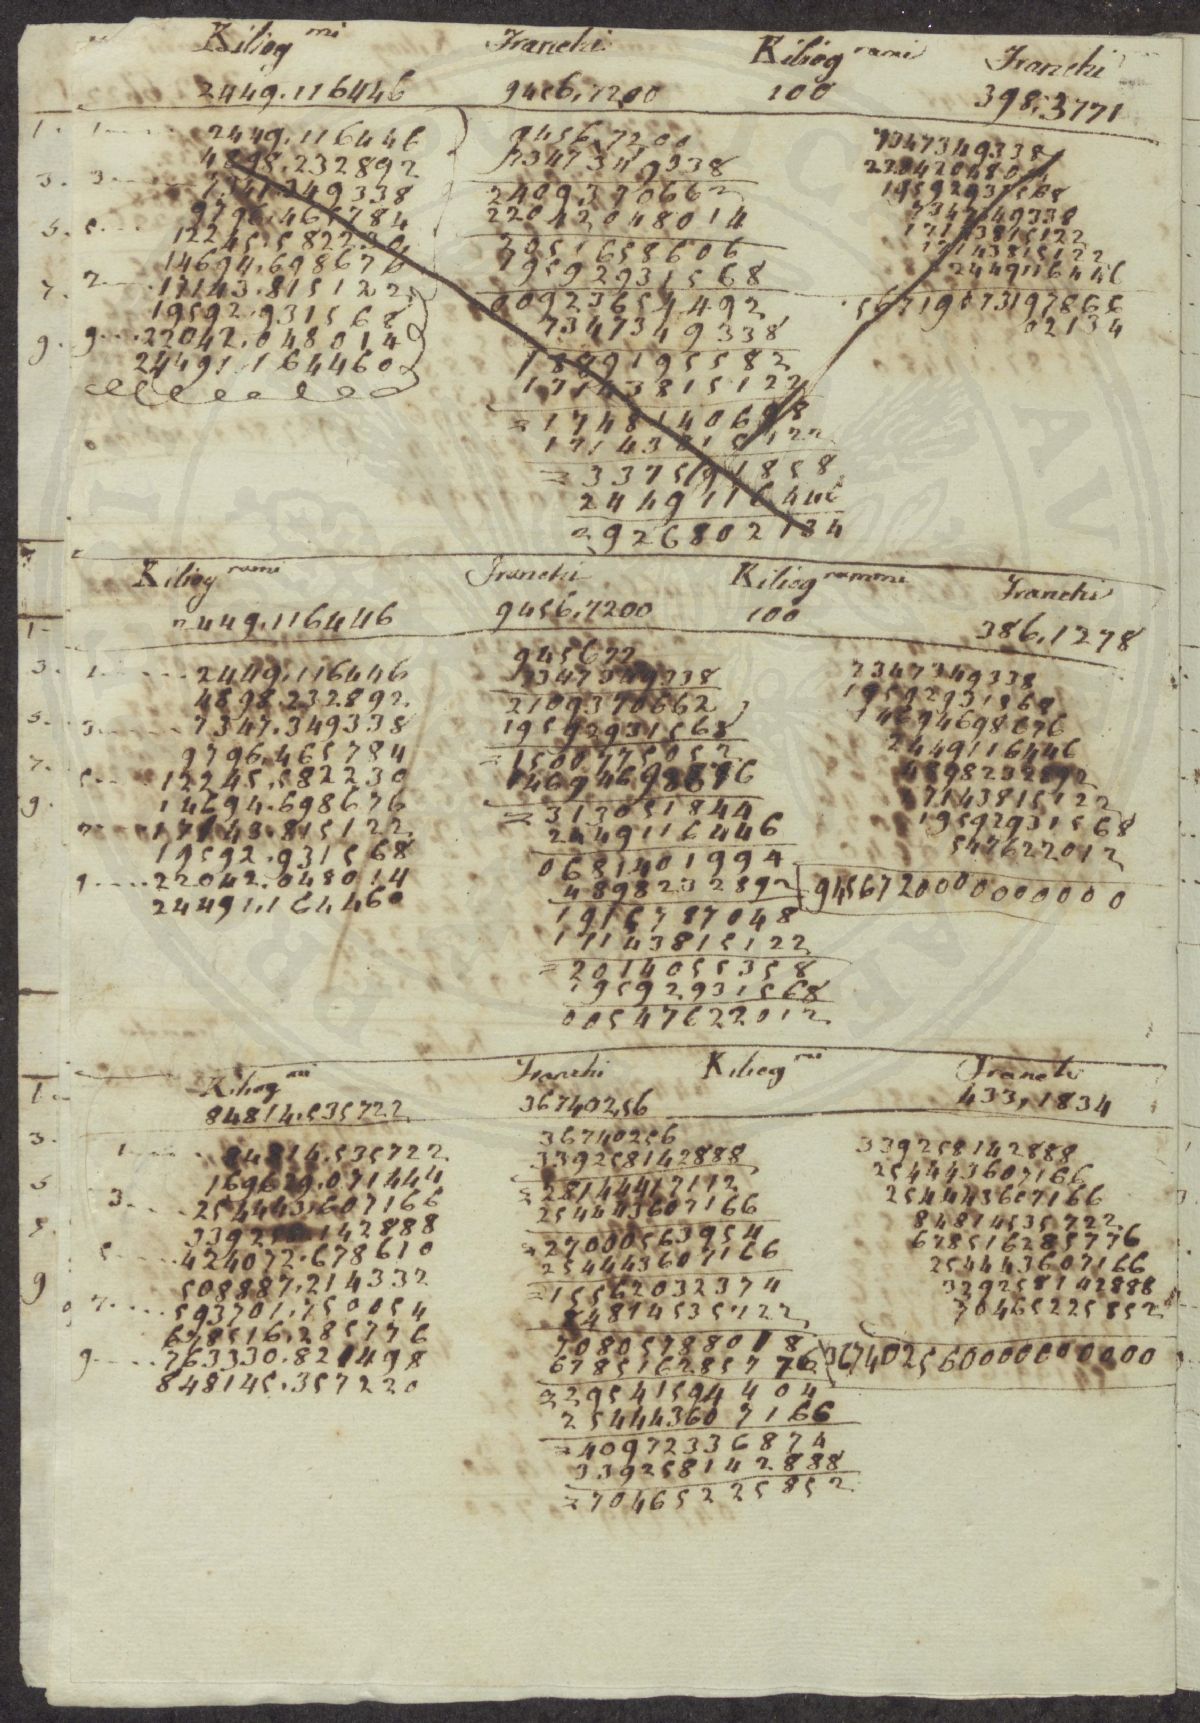 Kiliog mi Franchi Kiliog rami Franchi
2449.116446 9456,7200 100 398,3771
1. 1 2449.116446
4898.232892
3. 3 7347.349338
9796.465784
5. 5 12245.582230
14694.698676
7. 7 17143.815122
19592.931568
9. 9 22042.048014
24491.164460
9456.7200
7347349338
2409370662
22042048014
2051658606
19592931568
00923654492
7347349338
1889195582
17143815122
=1748140698
17143815122
=337591858
2449116446
=926802134
7347349338
22042048014
19592931568
7347349338
17143815122
17143815122
2449116446
02134
Kiliog rami Franchi Kiliog rammi Franchi
2449.116446 9456,7200 100 386,1278
1. 2449.116446
4898.232892
3. 7347.349338
9796.465784
5. 12245.582230
14694.698676
7. 17143.815122
19592.931568
9. 22042.048014
24491.164460
945672
7347349338
2109370662
19592931568
=1500775052
14694698676
=313051844
2449116446
0681401994
4898232892
1915787048
17143815122
=2014055358
19592931568
00547622012
7347349338
19592931568
14694698676
2449116446
4898232892
17143815122
19592931568
547622012
94567200000000000
Kiliog mi Franchi Kiliog mi Franchi
84814.535722 36740256 433,1834
1 84814.535722
169629.071444
3 254443.607166
339258.142888
5 424072.678610
508887.214332
7 593701.750054
678516.285776
9 763330.821498
848145.357220
36740256
339258142888
=28144417112
254443607166
=27000563954
254443607166
=15562032374
84814535722
70805788018
678516285776
=29541594404
254443607166
=40972336874
339258142888
=70465225852
339258142888
254443607166
254443607166
84814535722
678516285776
254443607166
339258142888
70465225852
3674025600000000000